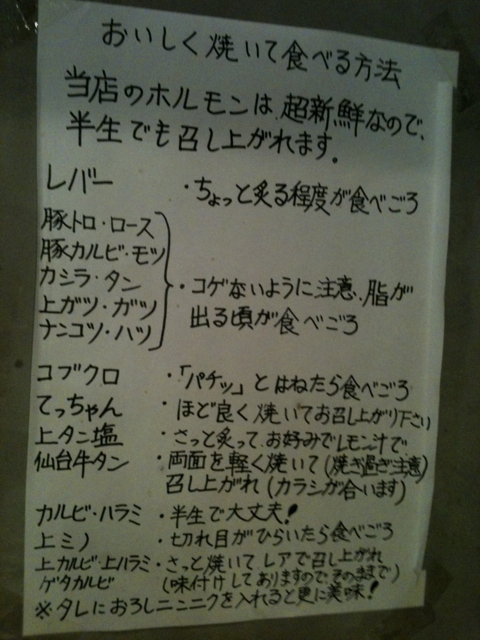 おいしく焼いて食べる方法
当店のホルモンは、超新鮮なので、
半生でも召し上がれます。
レバー ・ちょっと炙る程度が食べごろ
豚トロ・ロース
豚カルビ・モツ
カシラ・タン
上ガツ・ガツ
ナンコツ・ハツ
・コゲないように注意、脂が
出る頃が食べごろ
コブクロ ・「パチッ」とはねたら食べごろ
てっちゃん ・ほど良く焼いてお召し上がり下さい
上タン塩 ・さっと炙って、お好みでレモン汁で
仙台牛タン ・両面を軽く焼いて(焼き過ぎ注意)
召し上がれ(カラシが合います)
カルビ・ハラミ ・半生で大丈夫!
上ミノ ・切れ目がひらいたら食べごろ
上カルビ・上ハラミ ・さっと焼いてレアで召し上がれ
ゲタカルビ (味付けしてありますので、そのままで)
※タレにおろしニンニクを入れると更に美味!